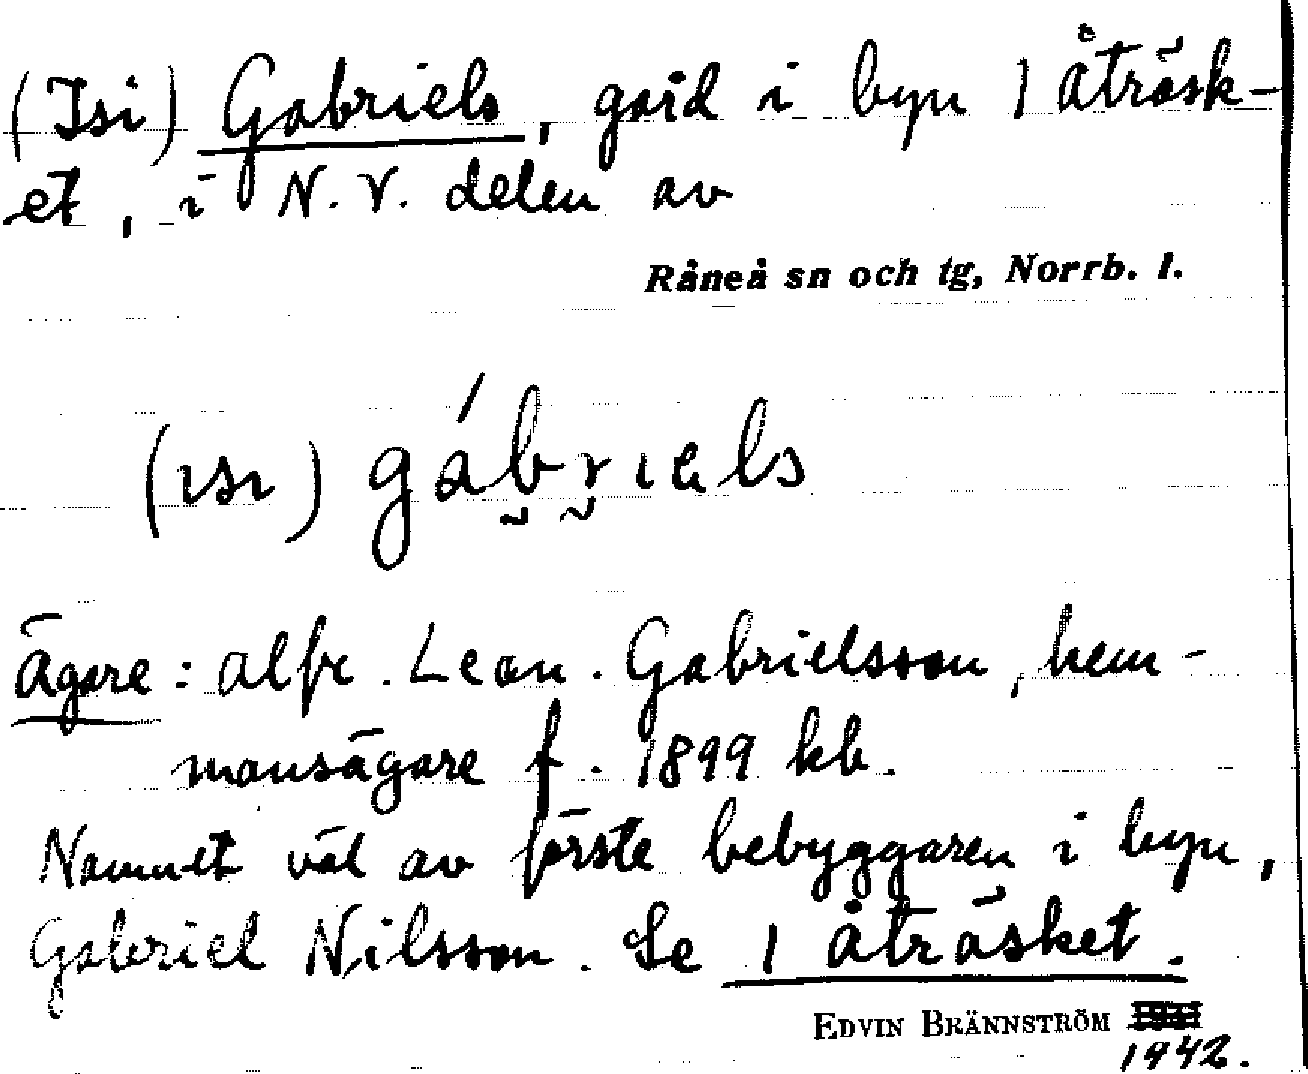 (Isi) Gabriels, gård i byn 1 Åträsk-
et, i N.V. delen av
Råneå sn och tg, Norrb. l.
(ısı) gábrıels
Ägare: Alfr. Leon. Gabrielsson, hem-
mansägare f. 1899 kb.
Namnet väl av förste bebyggaren i byn,
Gabriel Nilsson. Se 1 Åträsket.
EDVIN BRÄNNSTRÖM
1942.